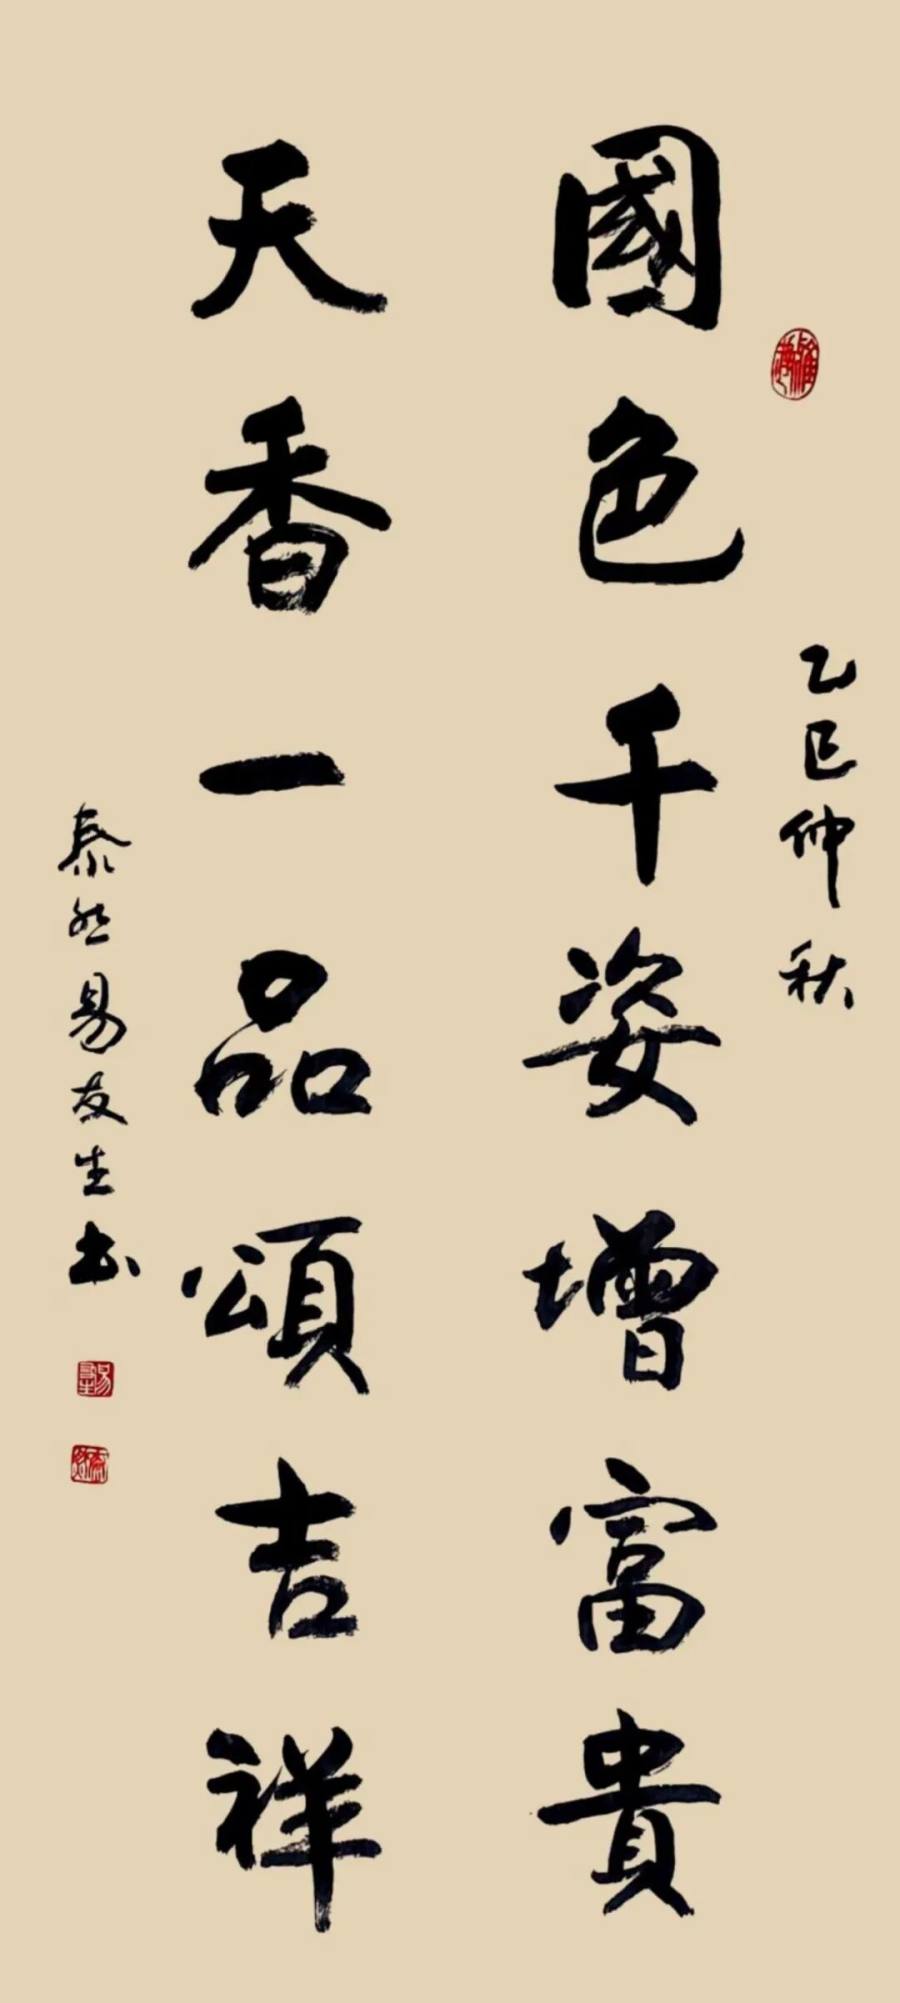 乙巳仲秋
國色千姿增富貴
天香一品頌吉祥
泰然易友生书